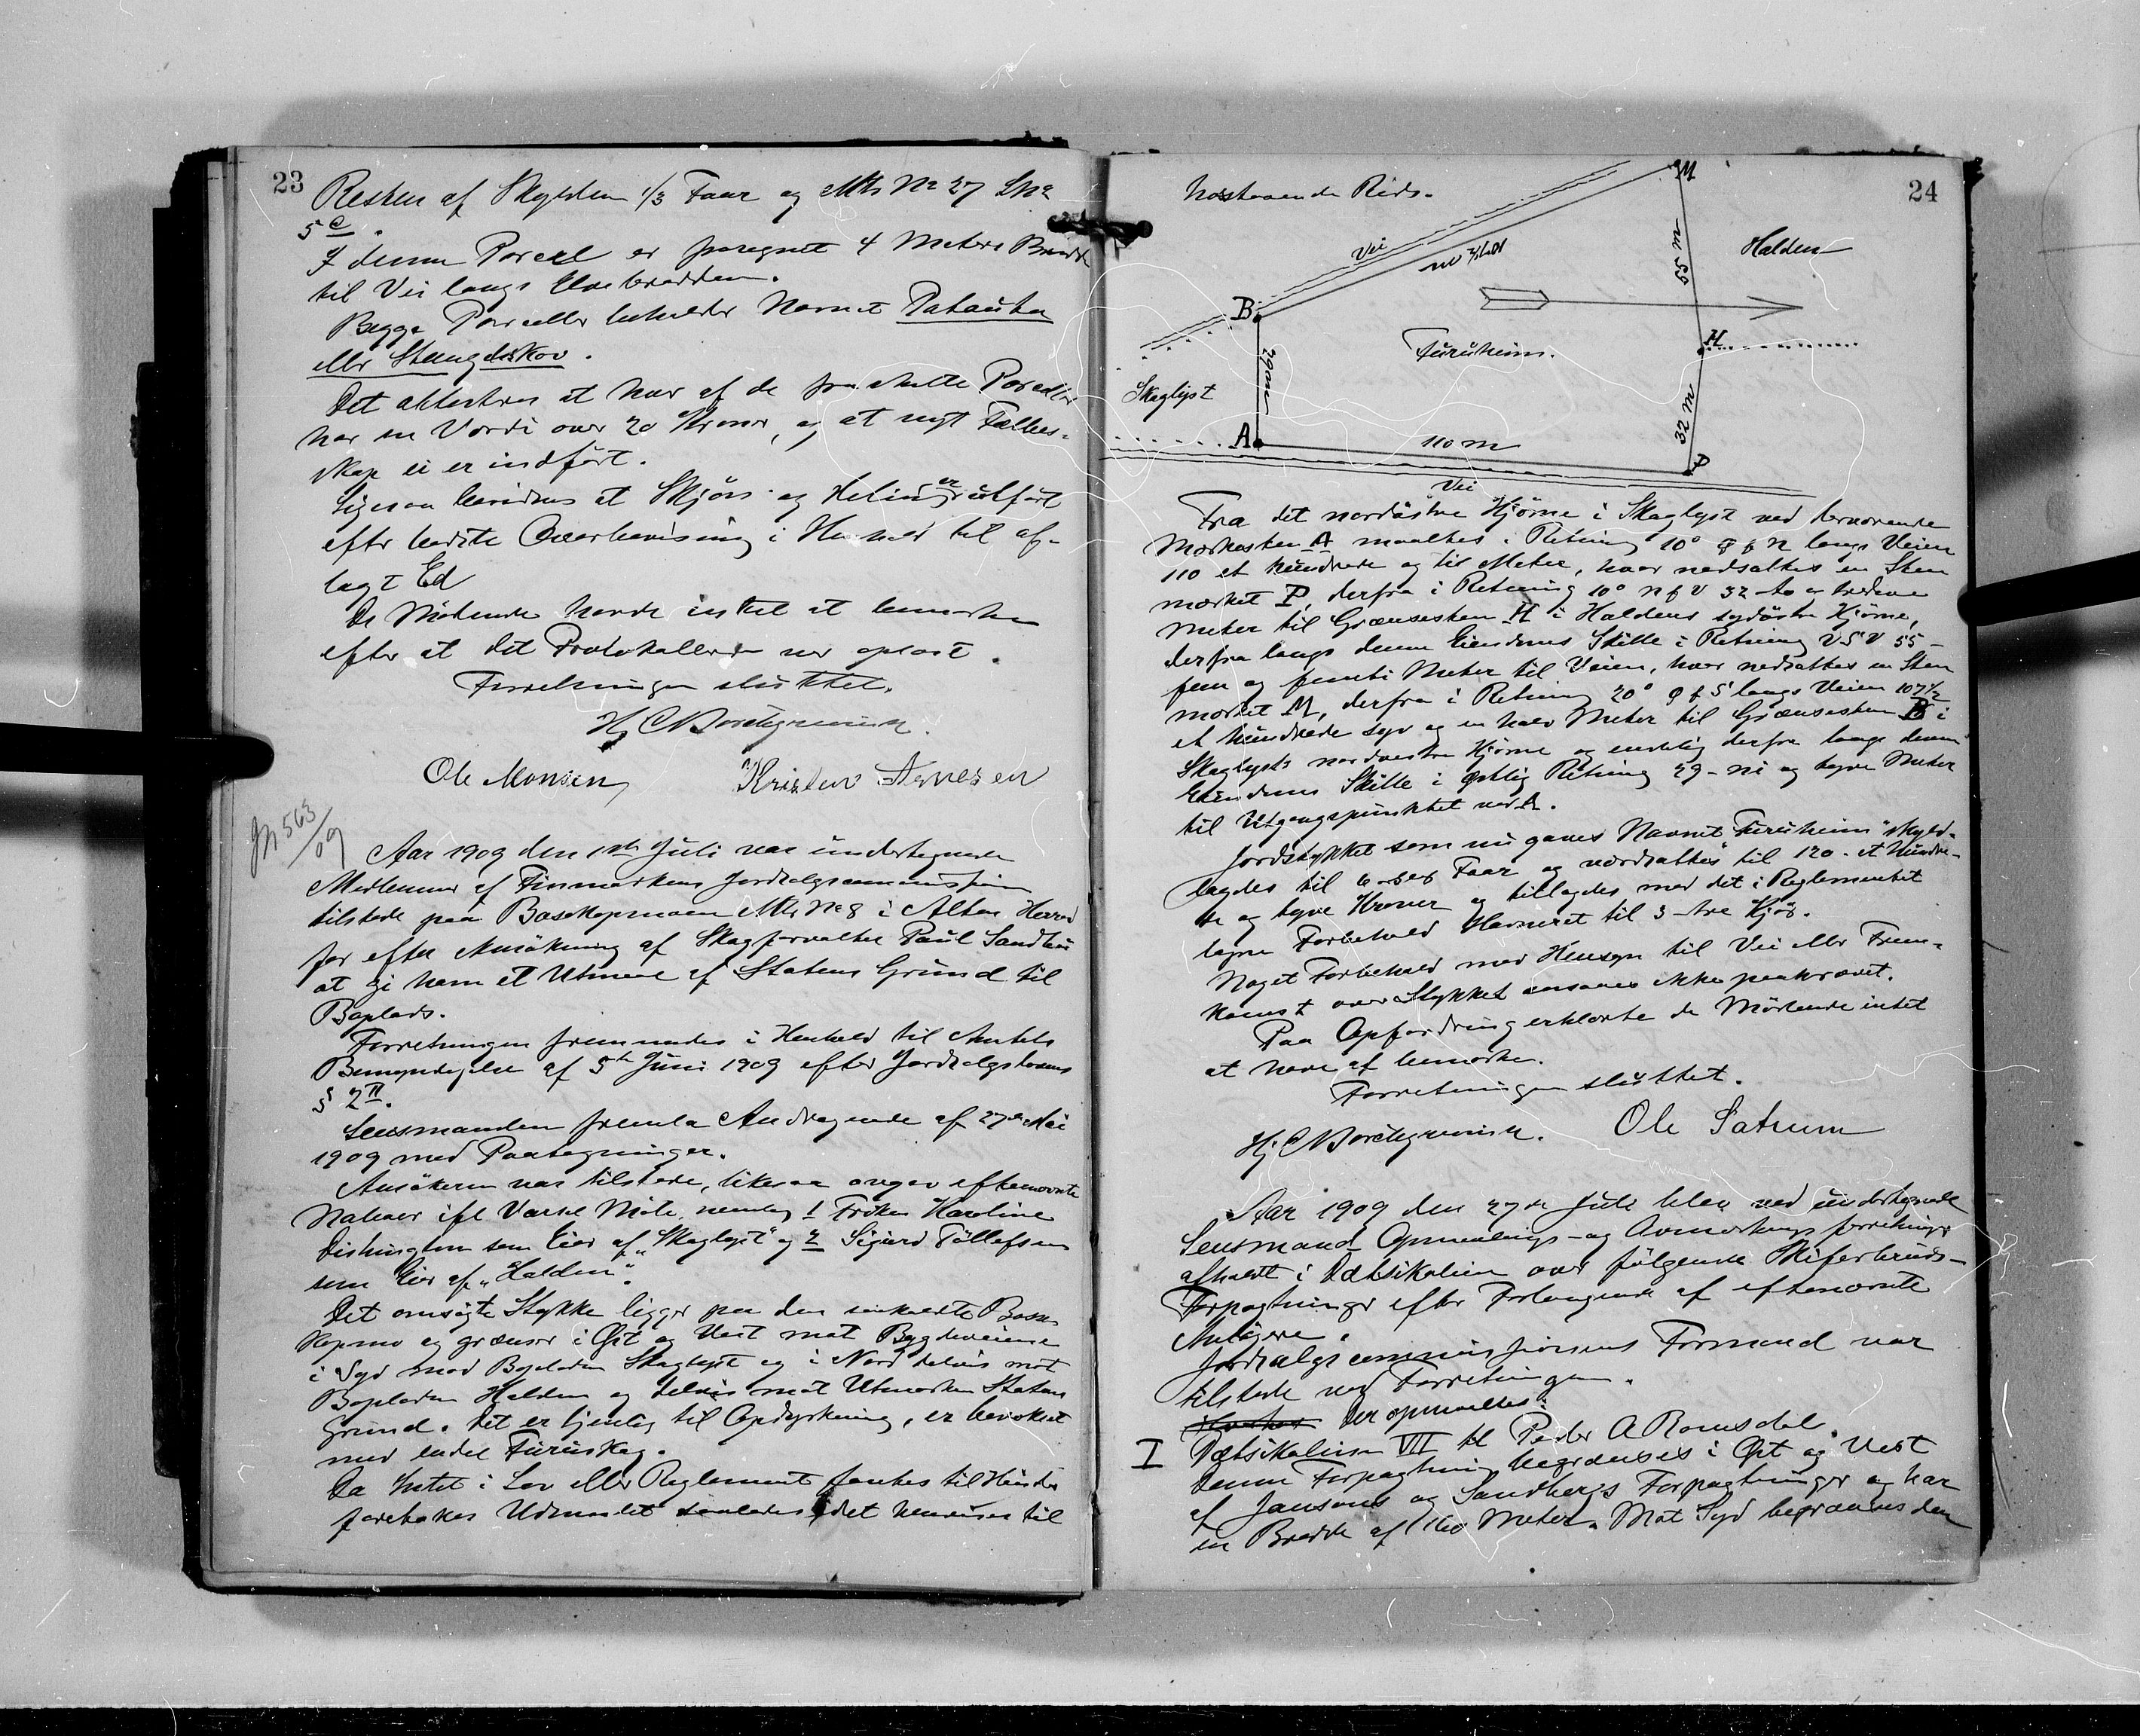 23
Resten af Skylden 1/3 Faar og Mtr No 27 LNo
5c.
I denne Parcel er paregnet 4 Meters Bredde
til Vei langs Elvebredden.
Begge Parceller beholder Navnet Patauba
eller Stengelskov.
Det attesteres at hver af de fraskilte Parceller
har en Værdi over 20 Kroner, og at nyt Fælles-
skap ei er indført.
Ligesaa bevidnes at Skjøn og Deling er utført
efter bedste Overbevisning i Henhold til af-
lagt Ed
De Mötende havde intet at bemerke
efter at det Protokollerede var oplæst.
Forretningen sluttet.
Hj C Borchgrevink.
Ole Monsen Kristen Agnesen
Jn 563/09
Aar 1909 den 1ste Juli var undertegnede
Medlemmer af Finmarkens Jordsalgscommission
tilstede paa Bosekopmoen Mtr No 8 i Alten Herred
for efter Ansökning af Skogforvalter Paul Sandhei
at gi ham et Utmaal af Statens Grund til
Boplads.
Forretningen fremmedes i Henhold til Amtets
Bemyndigelse af 5te Juni 1909 efter Jordsalgslovens
§ 2 II.
Lensmanden fremla Andragende af 27de Mai
1909 med Paategninger.
Ansökeren var tilstede, likesaa angav eftermævnte
Naboer ifl Varsel Möte, nemlig 1 Fröken Karoline
Dishington som Eier af "Skoglyst" og 2 Sigurd Tollefsen
som Eier af "Halden".
Det omsögte Stykke ligger paa den saakaldte Bosse-
kopmo og grænser i Øst og Vest mot Bygdeveiene
i Syd mod Bopladsen Skoglyst og i Nord delvis mot
Bopladsen Halden og delvis mot Utmarken Statens
Grund. Det er tjenlig til Opdyrkning, er bevokset
med endel Furuskog.
Da Intet i Lov eller Reglement fantes til Hinder
foretokes Udmaalet saaledes idet henvises til
24
Hosstaaende Rids.
M
Vei
107½ m
55 m
Halden
B
H
Furuheim.
29 m
Skoglyst
32 m
A
110 m
P
Vei
Fra det nordöstre Hjörne i Skoglyst ved derværende
Merkesten A maaltes i Retning 10° Ø f N langs Veien
110 et hundrede og ti Meter, hvor nedsattes en Sten
merket P, derfra i Retning 10° N f V 32 to og tredive
Meter til Grænsesten H i Haldens sydöstre Hjörne,
derfra langs denne Eiendoms Skille i Retning V S V 55 -
fem og femti Meter til Veien, hvor nedsattes en Sten
merket M, derfra i Retning 20° Ø f S langs Veien 107½
et hundrede syv og en halv Meter til Grænsesten B i
Skoglysts nordvestre Hjörne og endelig derfra langs denne
Eiendoms Skille i østlig Retning 29 - ni og tyve Meter
til Utgangspunktet ved A.
Jordstykket som nu gaves Navnet "Furuheim" skyld-
lagdes til Faar og værdsattes til 120 - et hundre-
de og tyve Kroner og tillagdes med det i Reglementet
tagne Forbehold Havneret til 3 - tre Kjör.
Noget Forbehold med Hensyn til Vei eller Frem-
komst over Stykket ansaaes ikke paakrævet.
Paa Opfordring erklærte de Mödende intet
at have af bemerke.
Forretningen sluttet.
Hj. C Borchgrevink. Ole Satrum
Aar 1909 den 27de Juli blev ved undertegnede
Lensmand Opmaalings- og Avmerkningsforretninger
afholdt i Dætsikalien over følgende Skiferbruds-
Forpagtninger efter Forlangende af eftermævnte
Ansögere.
Jordsalgscommissionens Formand var
tilstede ved Forretningen.
Der opmaaltes:
I Dætsikalien VII til Peder A Romsdal.
Denne Forpagtning begrænses i Øst og Vest
af Jansons og Sandbergs Forpagtninger og har
en Bredde af 160 Meter. Mot Syd begrænses den